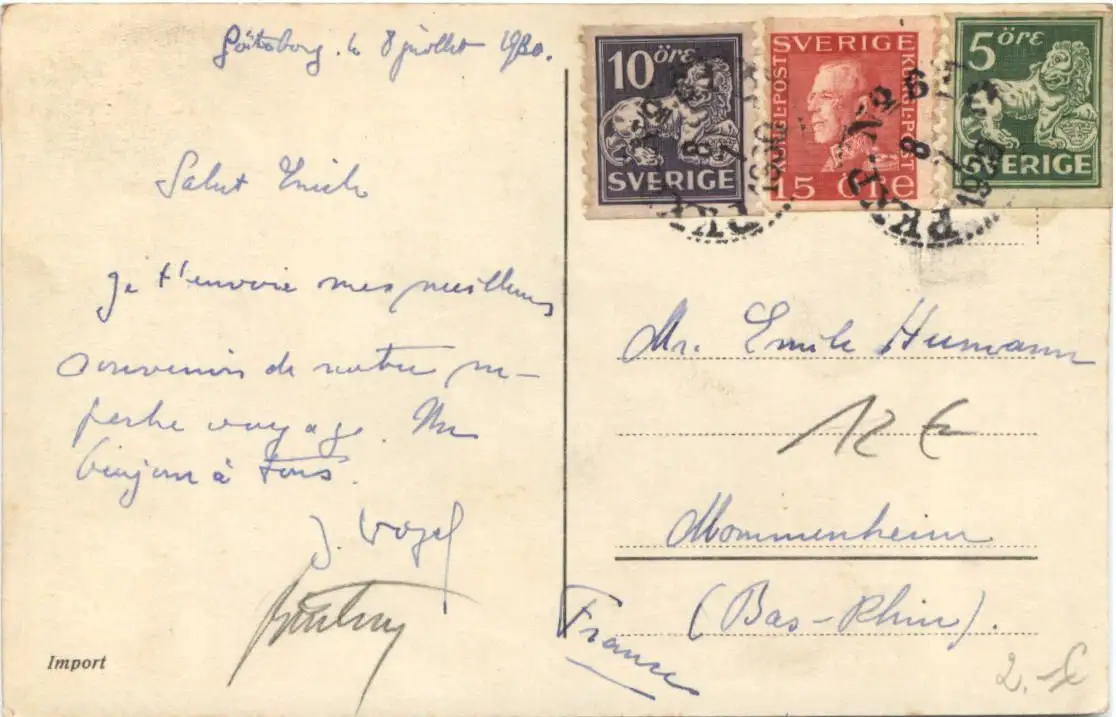 Göteborg, le 8 juillet 1930.
Salut Emile
Je t'envoie mes meilleurs
souvenirs de notre su-
perbe voyage. Un
bonjour à tous.
J. Vogel
Import
10 öre
SVERIGE
SVERIGE
KUNGL·POST
KUNGL·POST
15 ÖRE
5 öre
SVERIGE
PKXP. Nº 6
8 7 1930
Mr. Emile Humann
12 €
Mommenheim
(Bas-Rhin).
France